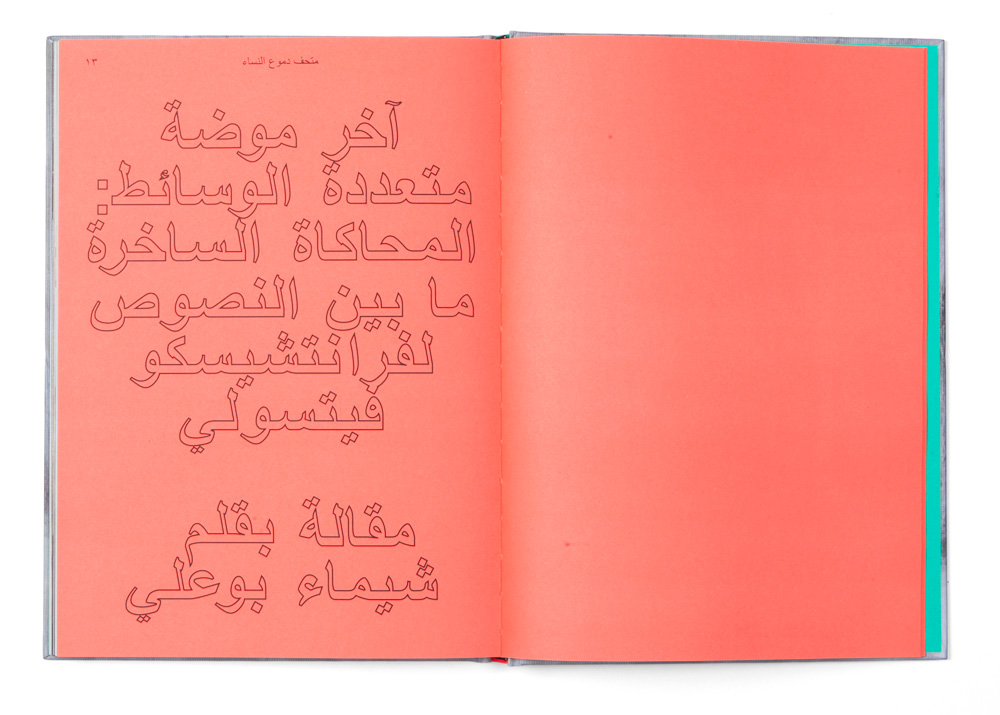 متحف دموع النساء
١٣
آخر موضة
متعددة الوسائط:
المحاكاة الساخرة
ما بين النصوص
لفرانتشيسكو
فيتسولي
مقالة بقلم
شيماء بوعلي